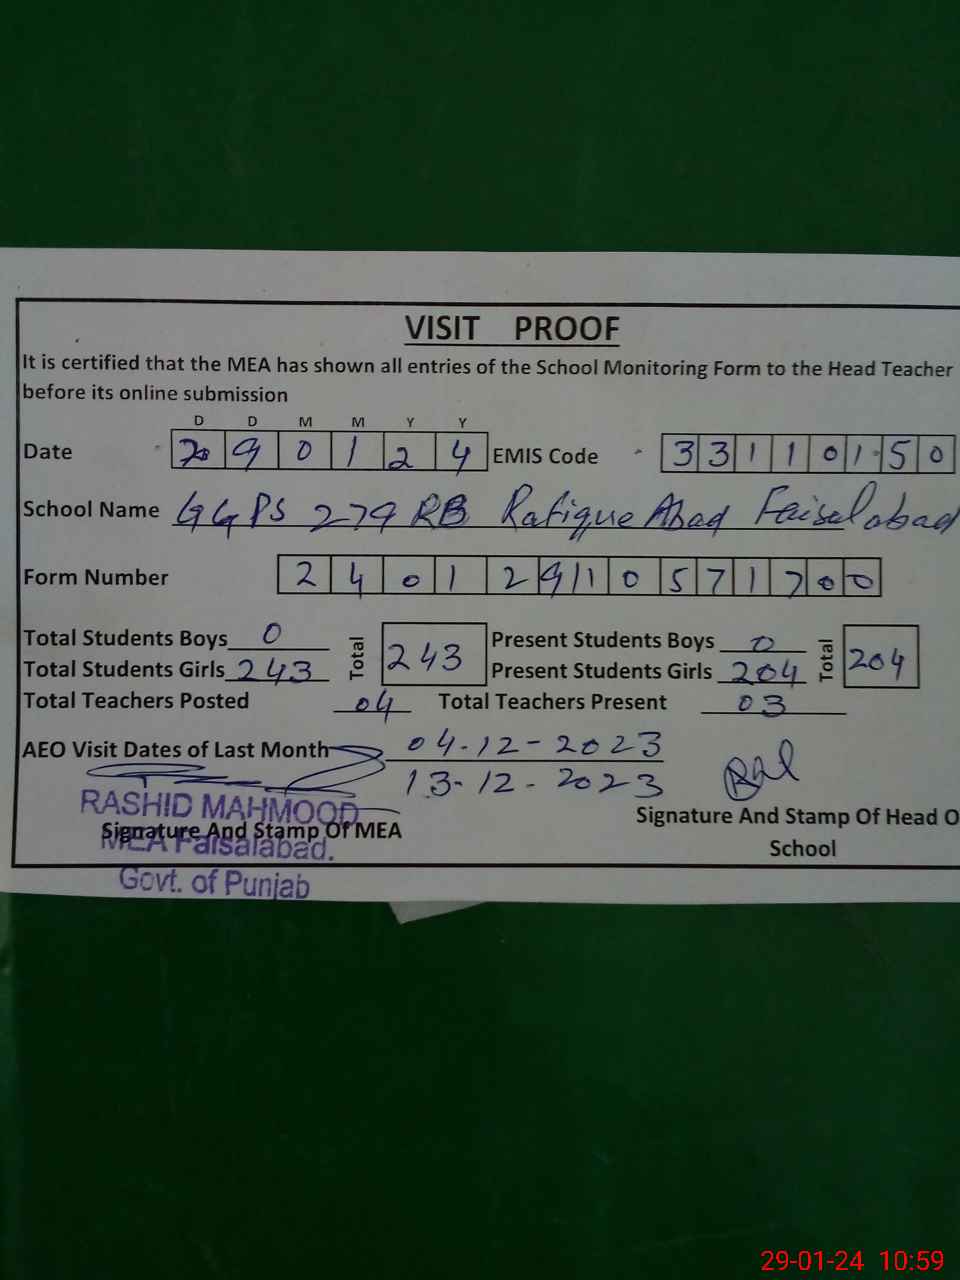 VISIT PROOF
It is certified that the MEA has shown all entries of the School Monitoring Form to the Head Teacher
before its online submission
D D M M Y Y
Date 29 01 24 EMIS Code 33110150
School Name GGPS 279 RB Rafique Abad Faisalabad
Form Number 24012910571700
Total Students Boys 0 Total 243 Present Students Boys 0 Total 204
Total Students Girls 243 Present Students Girls 204
Total Teachers Posted 04 Total Teachers Present 03
AEO Visit Dates of Last Month 04-12-2023
13-12-2023
RASHID MAHMOOD
Signature And Stamp Of MEA
MEA Faisalabad.
Govt. of Punjab
Signature And Stamp Of Head O
School
29-01-24 10:59